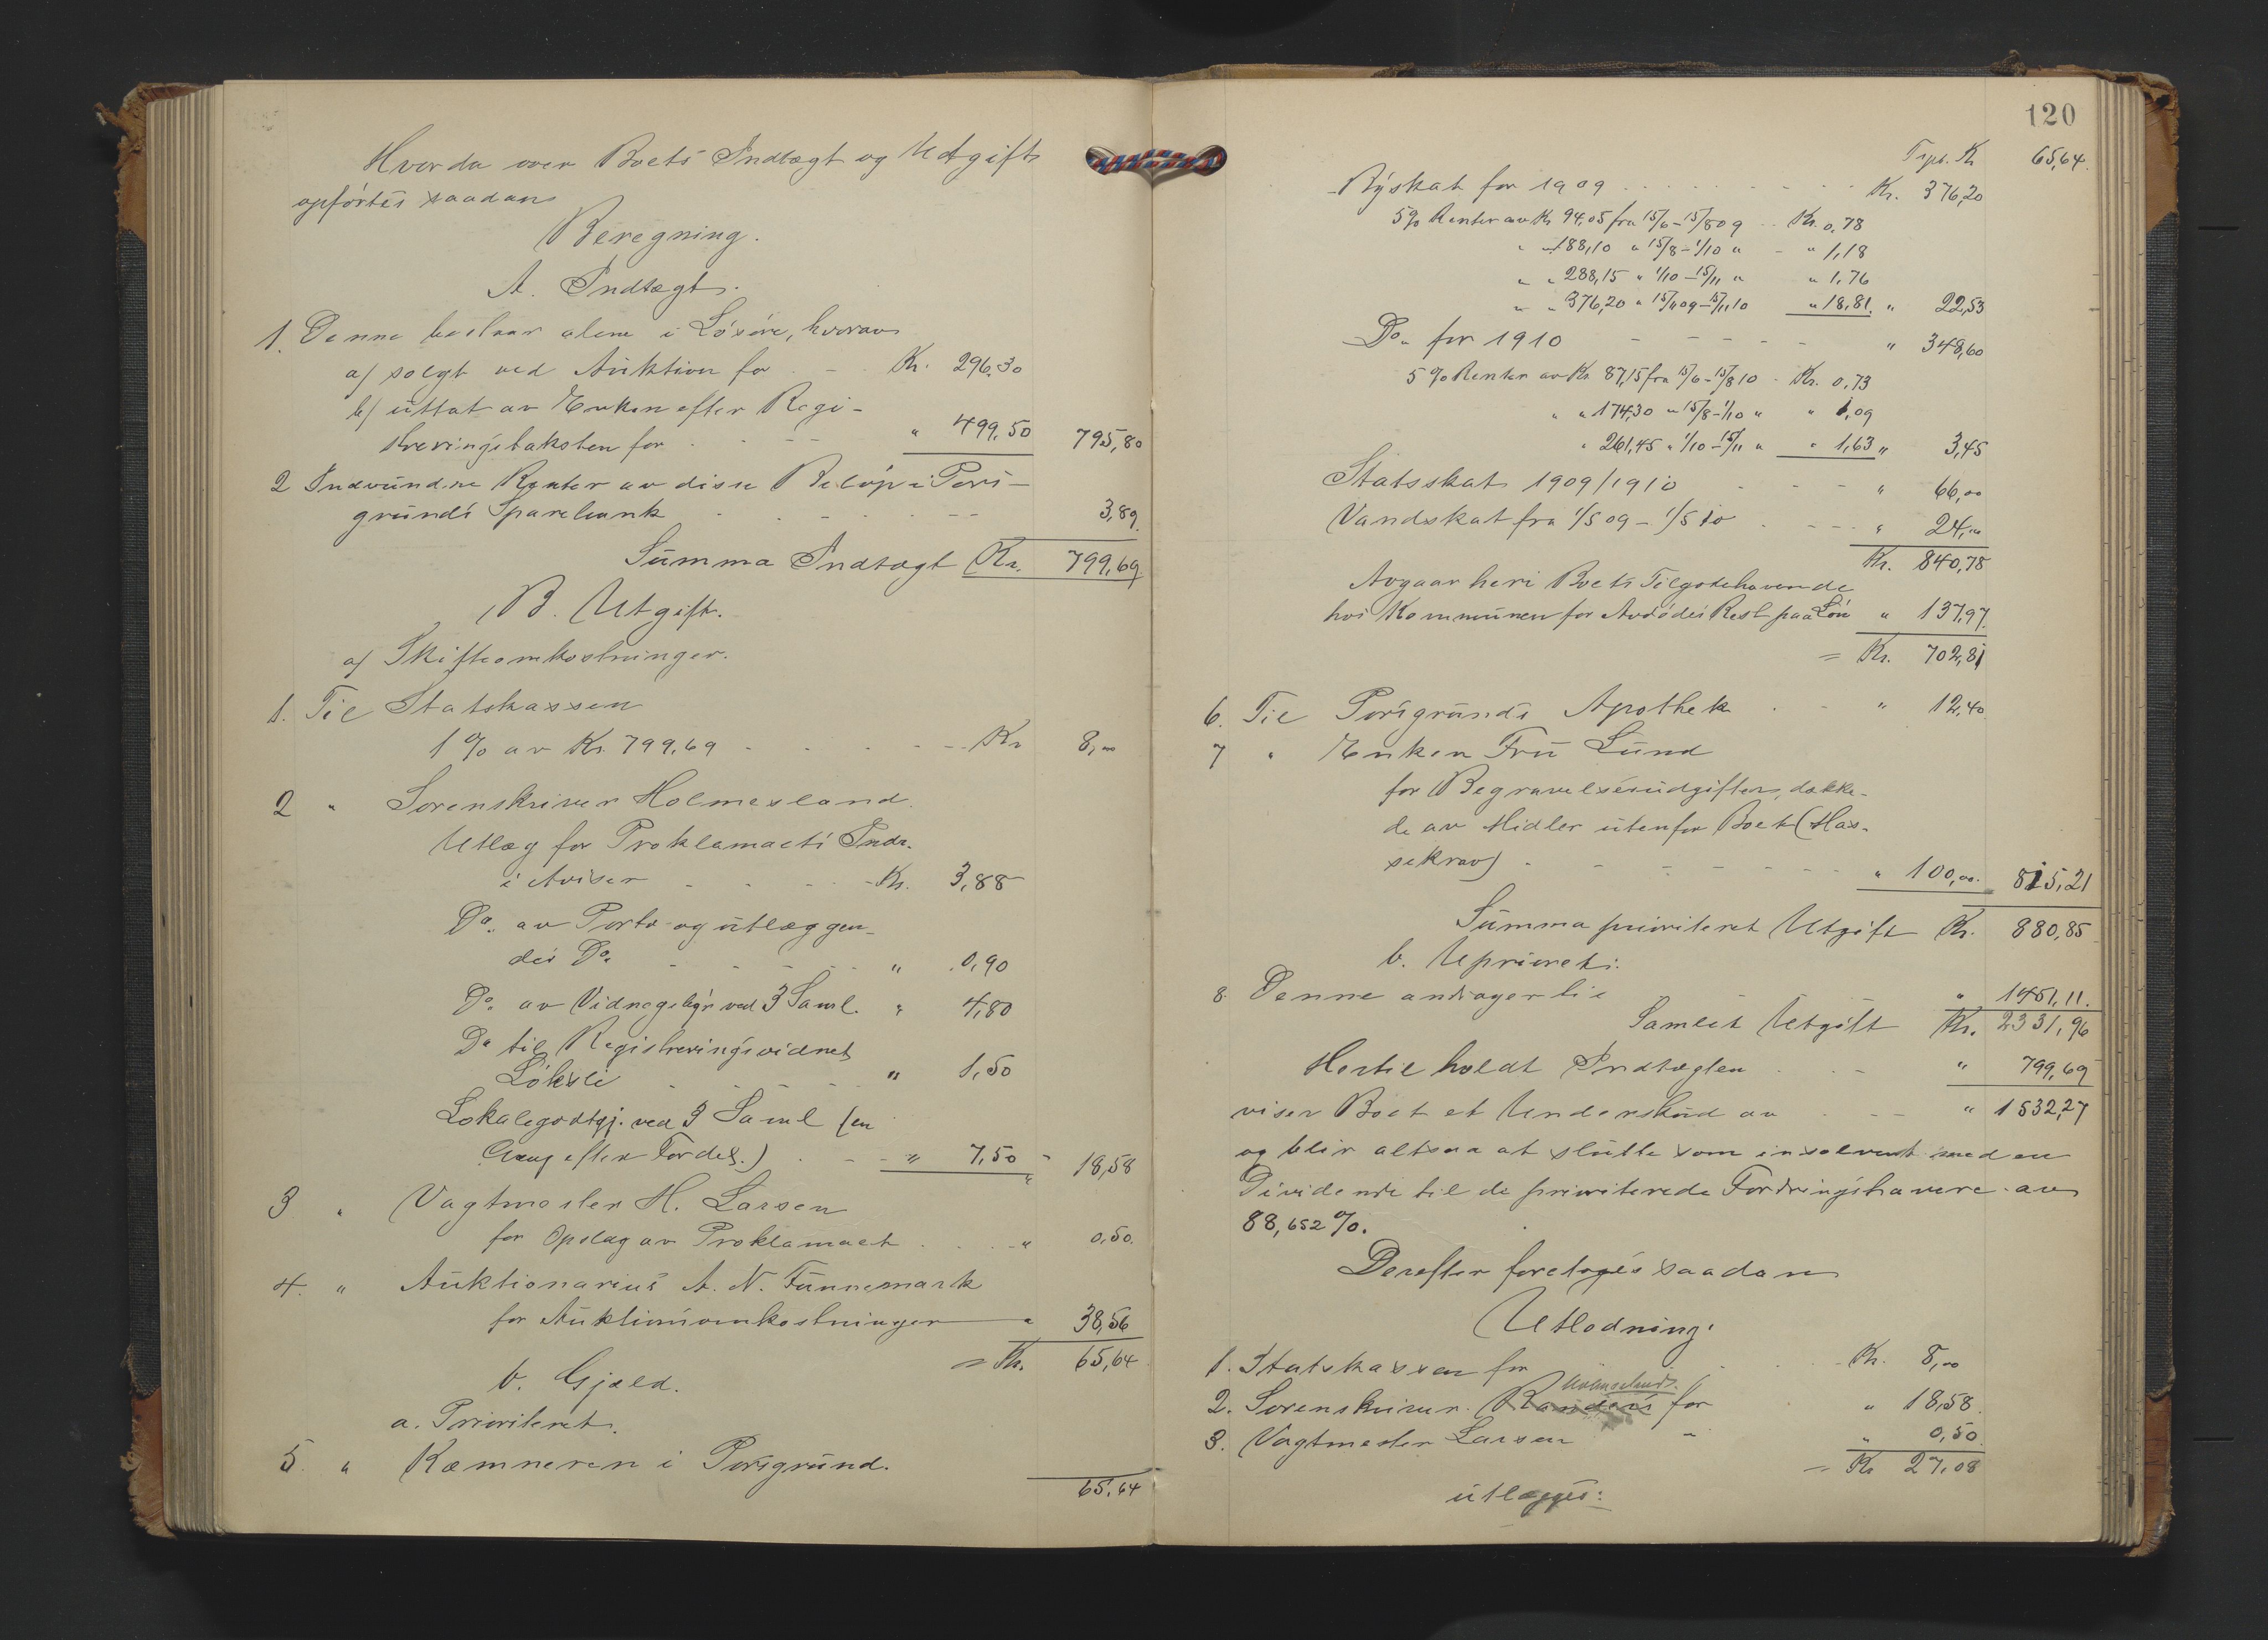 Hvorda over Boets Indtægt og Utgift
opførtes saadan
Beregning.
A. Indtægt.
1. Denne bestaar alene i Løsøre, hvorav
a) solgt ved Auktion for . - Kr. 296,30
b) uttat av Enken efter Regi-
streringstaksten for . - - - " 499,50 795,80
2 Indvundne Renter av disse Beløp i Pors-
grunds Sparebank . . - . - - - 3,89.
Summa Indtægt Kr. 799,69
B. Utgift.
a) Skifteomkostninger.
1. Til Statskassen
1 % av Kr. 799,69 - . - . - - Kr 8,00
2 " Sorenskriver Holmesland.
Utlæg for Proklamaets Indr.
i Aviser - . - . - Kr. 3,88
Do. av Porto og utlæggen-
des Do. - . - . - " 0,90
Do. av Vidnegebyr ved 3 Saml. " 4,80
Do til Registreringsvidnet
Löksli . - . - . " 1,50
Lokalegodtgj. ved 3 Saml (en
Gang efter Fordel.) . - - " 7,50 - " 18,58
3 " Vagtmester H. Larsen
for Opslag av Proklamaet . . . - " 0,50.
4. " Auktionarius A. N. Funnemark
for Auktionsomkostninger — " 38,56
= Kr. 65,64
b. Gjæld.
a. Prioriteret.
5. " Kæmneren i Porsgrund.
65,64
120
Trpt. Kr 65,64.
Byskat for 1909 . . . . . . . . Kr. 376,20
5 % Renter av Kr 94,05 fra 15/6 - 15/8 09 . . Kr. 0,78
" " 188,10 " 15/8 - 1/10 " - " 1,18
" " 288,15 " 1/10 - 15/11 " " 1,76
" " 376,20 " 15/11 09 - 15/11 10 " 18,81. " 22,53
Do. for 1910 - - - - - " 348,60
5 % Renter av Kr. 87,15 fra 15/6 - 15/8 10 - Kr. 0,73
" " 174,30 " 15/8 - 1/10 " " 1,09
" 261,45 " 1/10 - 15/11 " " 1,63 " 3,45
Statsskat 1909/1910 - - - " 66,00
Vandskat fra 1/5 09 - 1/5 10 . - - - " 24,00
Kr. 840,78
Avgaar heri Boets Tilgodehavende
hos Kommunen for Avdødes Rest paa Løn " 137,97.
= Kr. 702,81
6. Til Porsgrunds Apothek . - " 12,40
7 " Enken Fru Lund
for Begravelsesudgifter, dække-
de av Midler utenfor Boet (Mas-
sekrav) . - - - - - - " 100,00. 815,21
Summa prioriteret Utgift Kr. 880,85
b. Uprioret:
8. Denne andrager til - - - " 1451,11.
Samlet Utgift Kr. 2331,96
Hertil holdt Indtægten . - - " 799,69
viser Boet et Underskud av . - - " 1532,27
og blir altsaa at slutte som insolvent med en
Dividende til de prioriterede Fordringshavere av
88,652 %.
Derefter foretoges saadan
Utlodning:
1. Statskassen for . - Kr. 8,00
Holmeslands.
2. Sorenskriver Randers for . " 18,58.
3. Vagtmester Larsen " " 0,50.
= Kr 27,08
utlægges: